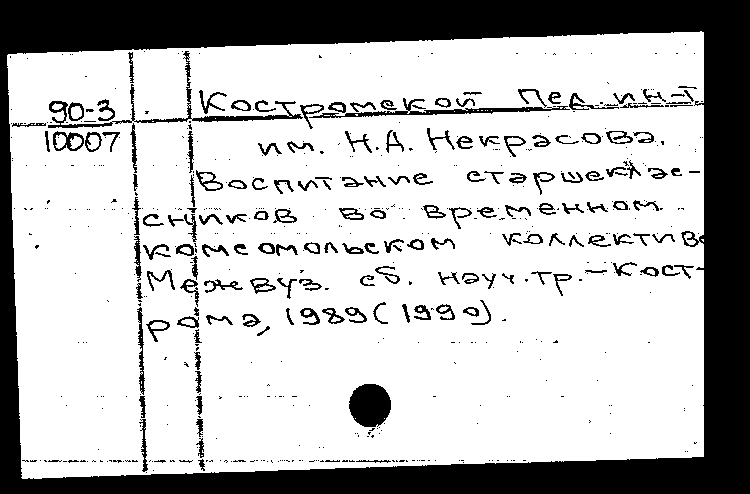 90-3
10007
Костромской пед. ин-т
им. Н.А. Некрасова.
Воспитание старшеклас-
сников во временном
комсомольском коллективе
Межвуз. сб. науч. тр. - Кост-
рома, 1989 (1990).